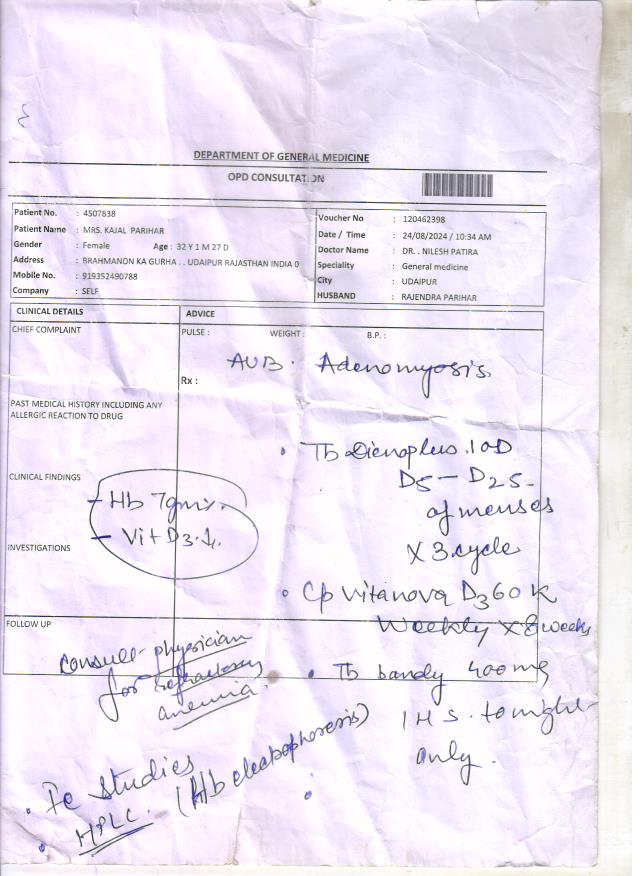 DEPARTMENT OF GENERAL MEDICINE
OPD CONSULTATION
Patient No. : 4507838
Patient Name : MRS. KAJAL PARIHAR
Gender : Female Age : 32 Y 1 M 27 D
Address : BRAHMANON KA GURHA . . UDAIPUR RAJASTHAN INDIA 0
Mobile No. : 919352490788
Company : SELF
Voucher No : 120462398
Date / Time : 24/08/2024 / 10:34 AM
Doctor Name : DR. . NILESH PATIRA
Speciality : General medicine
City : UDAIPUR
HUSBAND : RAJENDRA PARIHAR
CLINICAL DETAILS
ADVICE
CHIEF COMPLAINT
PULSE : WEIGHT : B.P. :
AUB. Adenomyosis.
Rx :
PAST MEDICAL HISTORY INCLUDING ANY
ALLERGIC REACTION TO DRUG
Tb Dienoplus. 1OD
D5 - D25
of menses
X 3 cycle
CLINICAL FINDINGS
- Hb 7gm%.
- Vit D3.
INVESTIGATIONS
Cp Vitanova D3 60K
Weekly X 8 weeks
FOLLOW UP
Consult physician
for refractory
anemia.
Tb bandy 400 mg
1 HS. tonight
only.
Fe Studies
HPLC. (Hb electrophoresis)